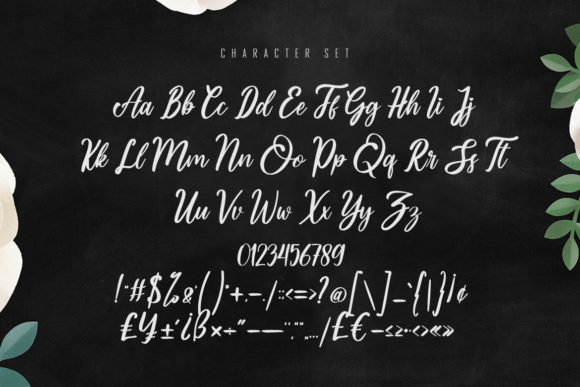 CHARACTER SET
Aa Bb Cc Dd Ee Ff Gg Hh Ii Jj
Kk Ll Mm Nn Oo Pp Qq Rr Ss Tt
Uu Vv Ww Xx Yy Zz
0123456789
!"#$%&()*+,-./:;<=>?@[\]_`{|}¡¢
£¥±´¿ß×÷“”–—‘’‚“”„…/£€−≤≥·‹›«»